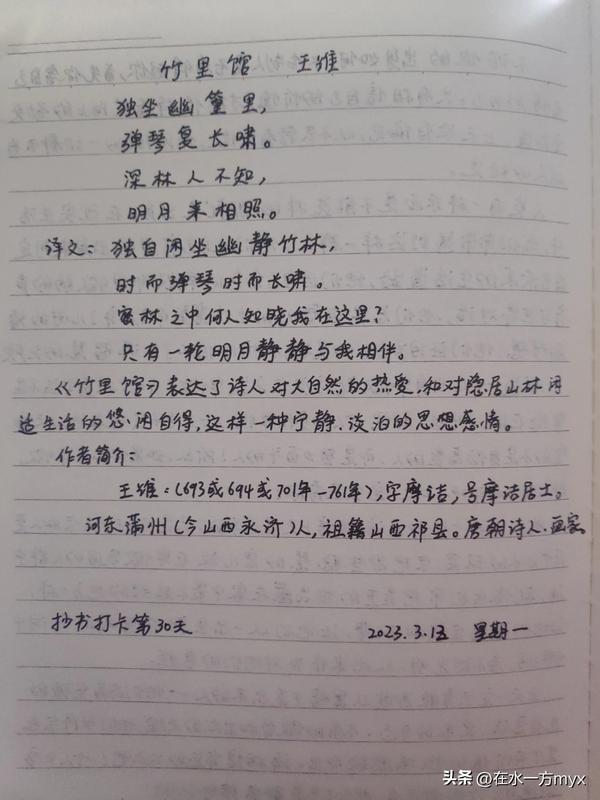 竹里馆 王维
独坐幽篁里,
弹琴复长啸。
深林人不知,
明月来相照。
译文: 独自闲坐幽静竹林,
时而弹琴时而长啸。
密林之中何人知晓我在这里?
只有一轮明月静静与我相伴。
《竹里馆》表达了诗人对大自然的热爱,和对隐居山林闲
适生活的悠闲自得,这样一种宁静、淡泊的思想感情。
作者简介:
王维:(693或694或701年-761年),字摩诘,号摩诘居士。
河东蒲州(今山西永济)人,祖籍山西祁县。唐朝诗人、画家
抄书打卡第30天 2023.3.13 星期一
头条 @在水一方myx